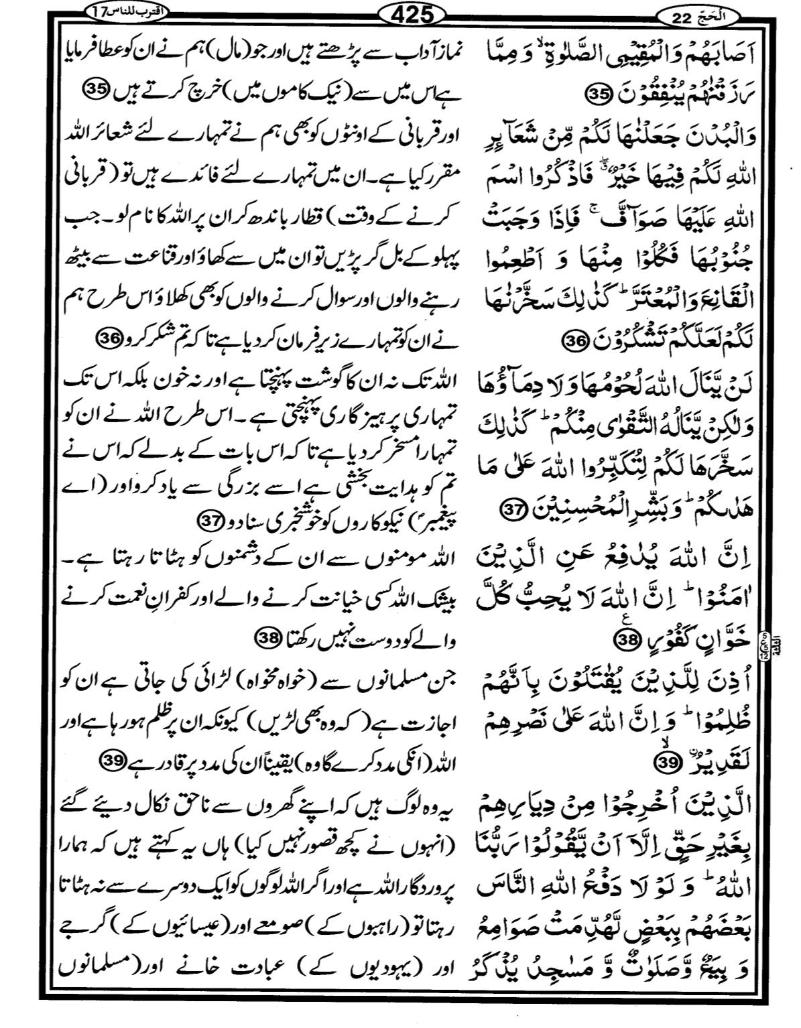 الْحَجّ 22
425
اقترب للناس 17
اَصَابَهُمْ وَالْمُقِيْمِي الصَّلٰوةِ ۙ وَ مِمَّا
رَزَقْنٰهُمْ يُنْفِقُوْنَ 35
وَالْبُدْنَ جَعَلْنٰهَا لَكُمْ مِّنْ شَعَآئِرِ
اللهِ لَكُمْ فِيْهَا خَيْرٌ ۖ فَاذْكُرُوا اسْمَ
اللهِ عَلَيْهَا صَوَآفَّ ۚ فَاِذَا وَجَبَتْ
جُنُوْبُهَا فَكُلُوْا مِنْهَا وَ اَطْعِمُوا
الْقَانِعَ وَالْمُعْتَرَّ ؕ كَذٰلِكَ سَخَّرْنٰهَا
لَكُمْ لَعَلَّكُمْ تَشْكُرُوْنَ 36
لَنْ يَّنَالَ اللهَ لُحُوْمُهَا وَلَا دِمَآؤُهَا
وَلٰكِنْ يَّنَالُهُ التَّقْوٰى مِنْكُمْ ؕ كَذٰلِكَ
سَخَّرَهَا لَكُمْ لِتُكَبِّرُوا اللهَ عَلٰى مَا
هَدٰىكُمْ ؕ وَبَشِّرِ الْمُحْسِنِيْنَ 37
اِنَّ اللهَ يُدٰفِعُ عَنِ الَّذِيْنَ
اٰمَنُوْا ؕ اِنَّ اللهَ لَا يُحِبُّ كُلَّ
خَوَّانٍ كَفُوْرٍ 38 ع
اُذِنَ لِلَّذِيْنَ يُقٰتَلُوْنَ بِاَنَّهُمْ
ظُلِمُوْا ؕ وَاِنَّ اللهَ عَلٰى نَصْرِهِمْ
لَقَدِيْرُ ۙ 39
الَّذِيْنَ اُخْرِجُوْا مِنْ دِيَارِهِمْ
بِغَيْرِ حَقٍّ اِلَّاۤ اَنْ يَّقُوْلُوْا رَبُّنَا
اللهُ ؕ وَ لَوْ لَا دَفْعُ اللهِ النَّاسَ
بَعْضَهُمْ بِبَعْضٍ لَّهُدِّمَتْ صَوَامِعُ
وَ بِيَعٌ وَّصَلَوٰتٌ وَّ مَسٰجِدُ يُذْكَرُ
نماز آداب سے پڑھتے ہیں اور جو (مال) ہم نے ان کو عطا فرمایا
ہے اس میں سے (نیک کاموں میں) خرچ کرتے ہیں 35
اور قربانی کے اونٹوں کو بھی ہم نے تمہارے لئے شعائر اللہ
مقرر کیا ہے۔ ان میں تمہارے لئے فائدے ہیں تو (قربانی
کرنے کے وقت) قطار باندھ کر ان پر اللہ کا نام لو۔ جب
پہلو کے بل گر پڑیں تو ان میں سے کھاؤ اور قناعت سے بیٹھ
رہنے والوں اور سوال کرنے والوں کو بھی کھلاؤ اس طرح ہم
نے ان کو تمہارے زیر فرمان کر دیا ہے تاکہ تم شکر کرو 36
اللہ تک نہ ان کا گوشت پہنچتا ہے اور نہ خون بلکہ اس تک
تمہاری پرہیز گاری پہنچتی ہے۔ اس طرح اللہ نے ان کو
تمہارا مسخر کر دیا ہے تاکہ اس بات کے بدلے کہ اس نے
تم کو ہدایت بخشی ہے اسے بزرگی سے یاد کرو اور (اے
پیغمبر) نیکو کاروں کو خوشخبری سنا دو 37
اللہ مومنوں سے ان کے دشمنوں کو ہٹاتا رہتا ہے۔
بیشک اللہ کسی خیانت کرنے والے اور کفرانِ نعمت کرنے
والے کو دوست نہیں رکھتا 38
جن مسلمانوں سے (خواہ مخواہ) لڑائی کی جاتی ہے ان کو
اجازت ہے (کہ وہ بھی لڑیں) کیونکہ ان پر ظلم ہو رہا ہے اور
اللہ (انکی مدد کرے گا وہ) یقیناً ان کی مدد پر قادر ہے 39
یہ وہ لوگ ہیں کہ اپنے گھروں سے ناحق نکال دیئے گئے
(انہوں نے کچھ قصور نہیں کیا) ہاں یہ کہتے ہیں کہ ہمارا
پروردگار اللہ ہے اور اگر اللہ لوگوں کو ایک دوسرے سے نہ ہٹاتا
رہتا تو (راہبوں کے) صومعے اور (عیسائیوں کے) گرجے
اور (یہودیوں کے) عبادت خانے اور (مسلمانوں